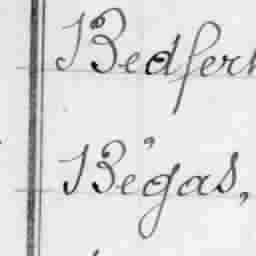 Bedfer
Bégas,